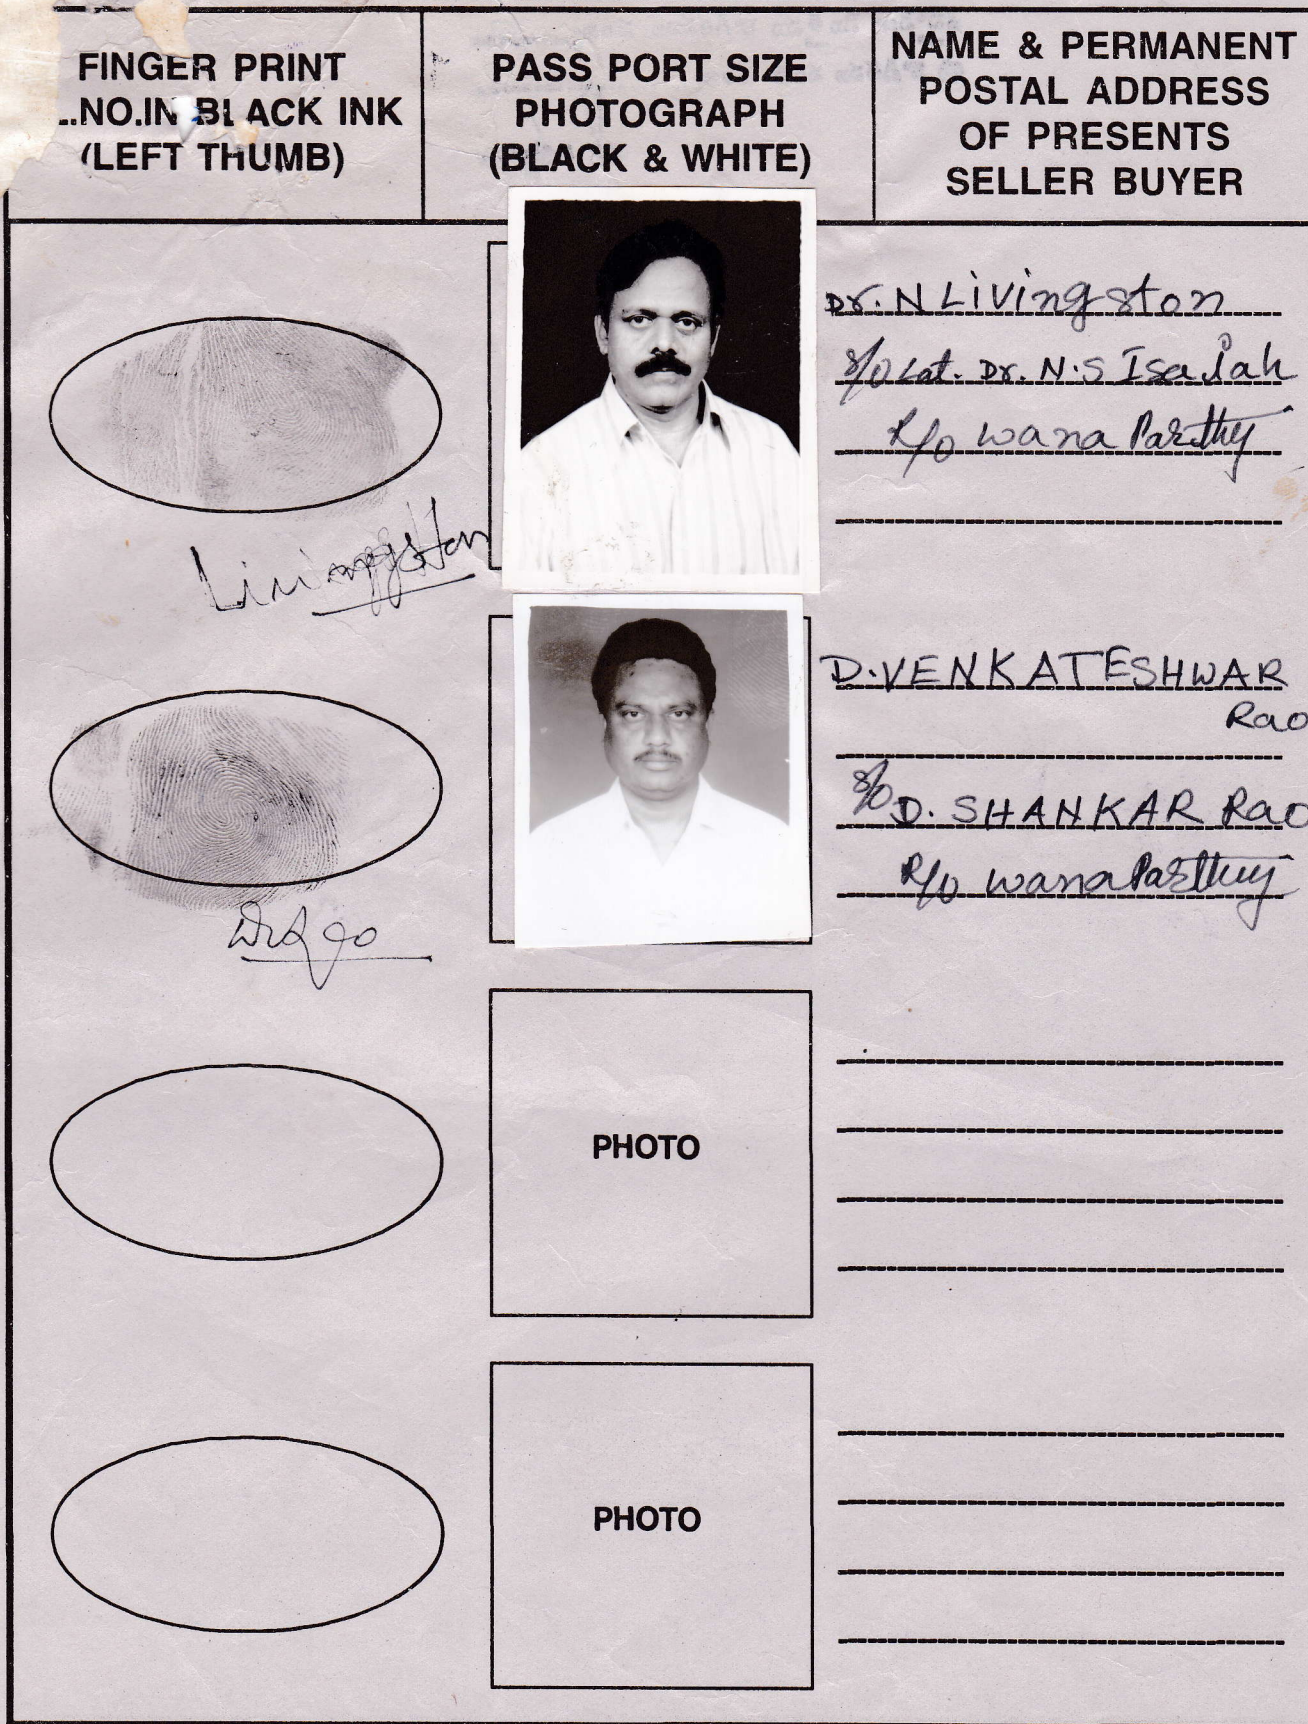 FINGER PRINT
..NO.IN BLACK INK
(LEFT THUMB)
PASS PORT SIZE
PHOTOGRAPH
(BLACK & WHITE)
NAME & PERMANENT
POSTAL ADDRESS
OF PRESENTS
SELLER BUYER
Dr. N Livingston
S/o Lat. Dr. N.S Isaiah
R/o wanaParthy
Livingston
D.VENKATESHWAR
Rao
S/o D. SHANKAR Rao
R/o wanaParthy
PHOTO
PHOTO